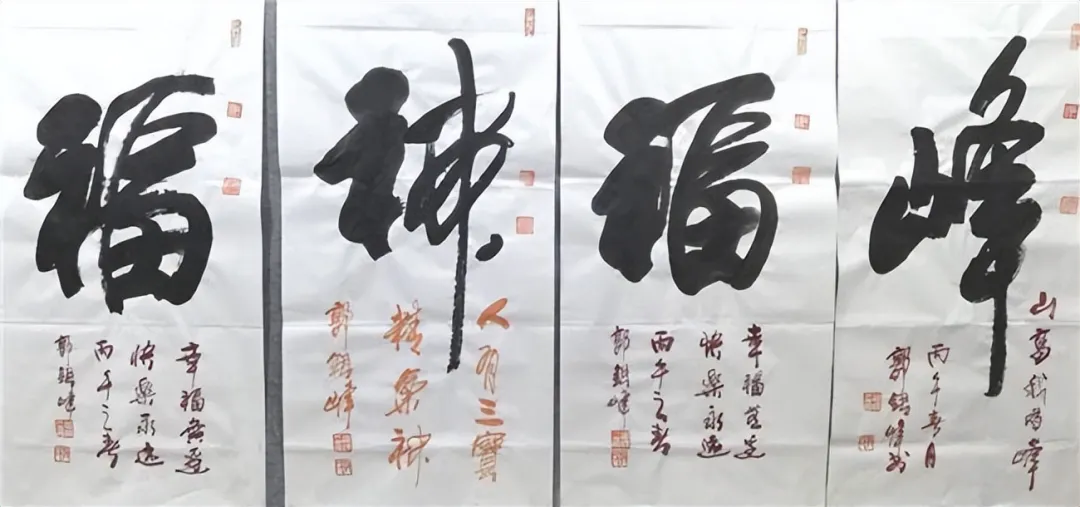 福
幸福無邊
快樂永遠
丙午之春
郭峰
神
人有三寶
精氣神
郭峰
福
幸福
快樂永遠
丙午之春
郭峰
峰
山高我为峰
丙午春月
郭峰书